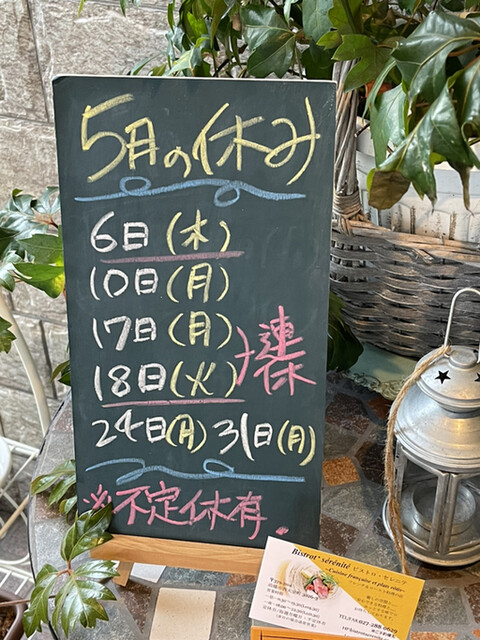 5月の休み
6日(木)
10日(月)
17日(月)
18日(火)
連休
24日(月) 31日(月)
※不定休有.
Bistrot* sérénité ビストロ・セレニテ
~Cuisine française et plats visés~